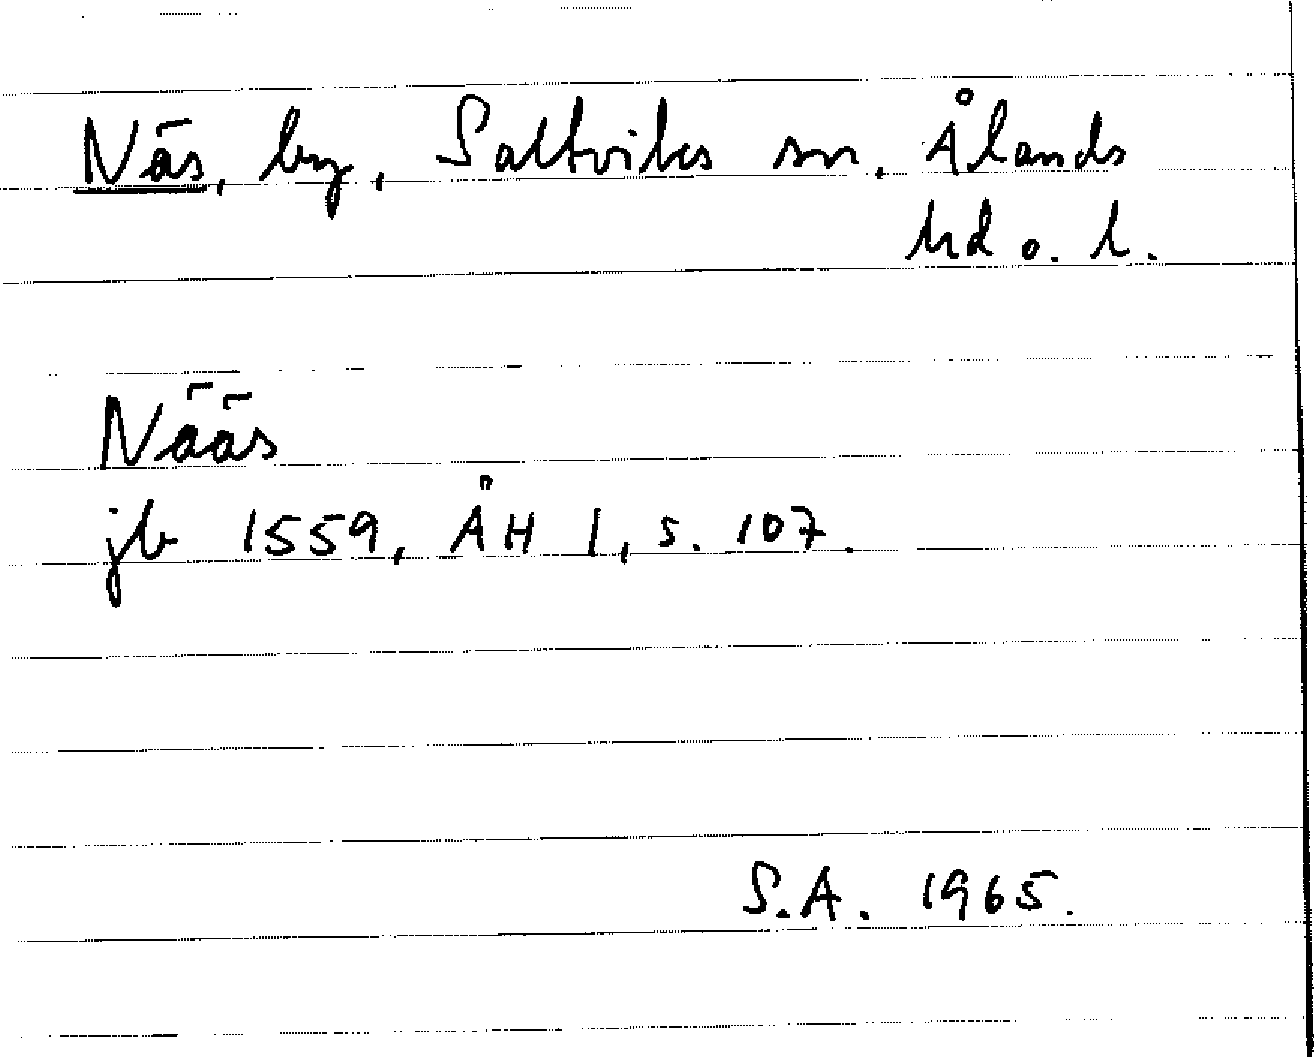 Näs, by, Saltviks sn, Ålands
hd o. l.
Nääs
jb 1559, ÅH 1, s. 107.
S.A. 1965.